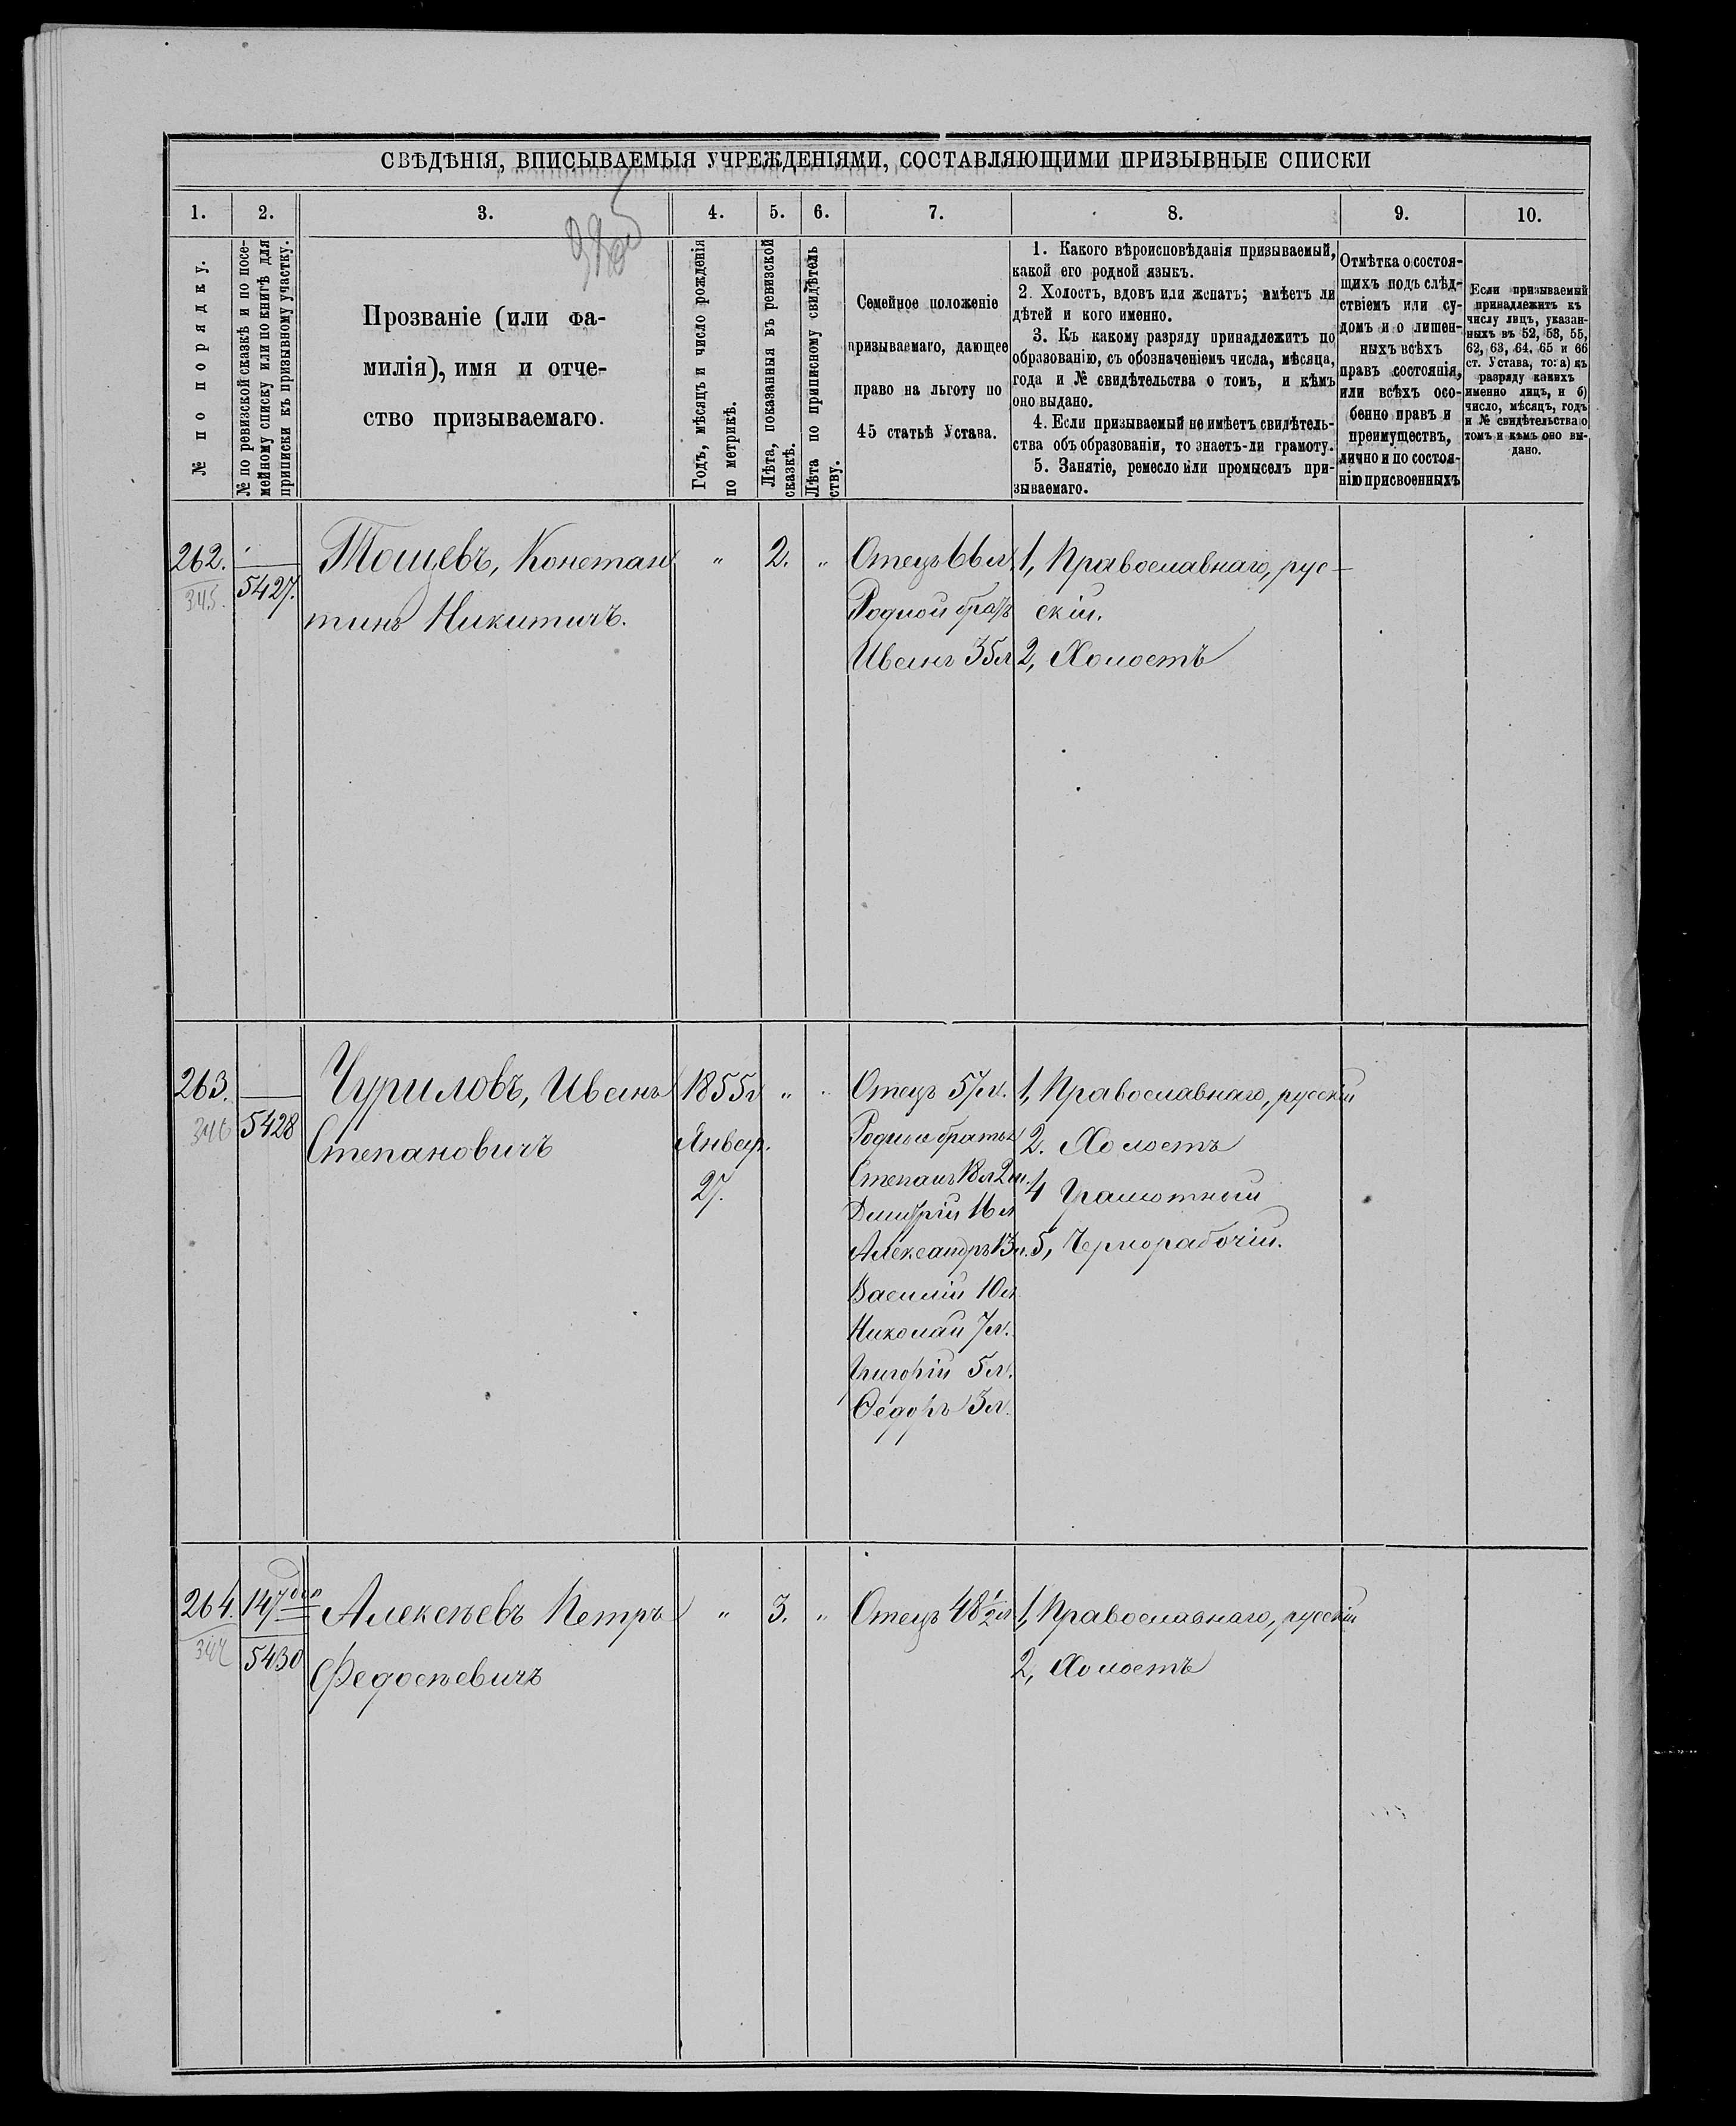 СВѢДѢНІЯ, ВПИСЫВАЕМЫЯ УЧРЕЖДЕНІЯМИ, СОСТАВЛЯЮЩИМИ ПРИЗЫВНЫЕ СПИСКИ
1. 2. 3. 4. 5. 6. 7. 8. 9. 10.
№ по порядку.
№ по ревизской сказкѣ и по посе-
мейному списку или по книгѣ для
приписки къ призывному участку.
Прозваніе (или фа-
милія), имя и отче-
ство призываемаго.
Годъ, мѣсяцъ и число рожденія
по метрикѣ.
Лѣта, показанныя въ ревизской
сказкѣ.
Лѣта по приписному свидѣтель
ству.
Семейное положеніе
призываемаго, дающее
право на льготу по
45 статьѣ Устава.
1. Какого вѣроисповѣданія призываемый,
какой его родной языкъ.
2. Холостъ, вдовъ или женатъ; имѣетъ ли
дѣтей и кого именно.
3. Къ какому разряду принадлежитъ по
образованію, съ обозначеніемъ числа, мѣсяца,
года и № свидѣтельства о томъ, и кѣмъ
оно выдано.
4. Если призываемый не имѣетъ свидѣтель-
ства объ образованіи, то знаетъ-ли грамоту.
5. Занятіе, ремесло или промыселъ при-
зываемаго.
Отмѣтка о состоя-
щихъ подъ слѣд-
ствіемъ или су-
домъ и о лишен-
ныхъ всѣхъ
правъ состоянія,
или всѣхъ осо-
бенно правъ и
преимуществъ,
лично и по состоя-
нію присвоенныхъ
Если призываемый
принадлежитъ къ
числу лицъ, указан-
ныхъ въ 52, 53, 55,
62, 63, 64, 65 и 66
ст. Устава, то: а) къ
разряду какихъ
именно лицъ, и б)
число, мѣсяцъ, годъ
и № свидѣтельства о
томъ и кѣмъ оно вы-
дано.
262.
345.
5427.
Тощевъ, Констан
тинъ Никитичъ.
" 2. "
Отецъ 66 л.
Родной братъ
Иванъ 35 л
1, Православнаго, рус-
скій.
2, Холостъ
263.
346
5428
Чуриловъ, Иванъ
Степановичъ
1855 г
Январ.
27.
" "
Отецъ 57 л.
Родные братья
Степанъ 18 л 2 м.
Дмитрій 16 л
Александръ 13 л.
Василій 10 л
Николай 7 л.
Григорій 5 л.
Ѳедоръ 3 л.
1, Православнаго, русскій
2. Холостъ
4 Грамотный
5, Чернорабочій.
264.
347
147 доп
5430
Алексѣевъ Петръ
Федосѣевичъ
" 3. "
Отецъ 48 1/2 л
1, Православнаго, русскій
2, Холостъ